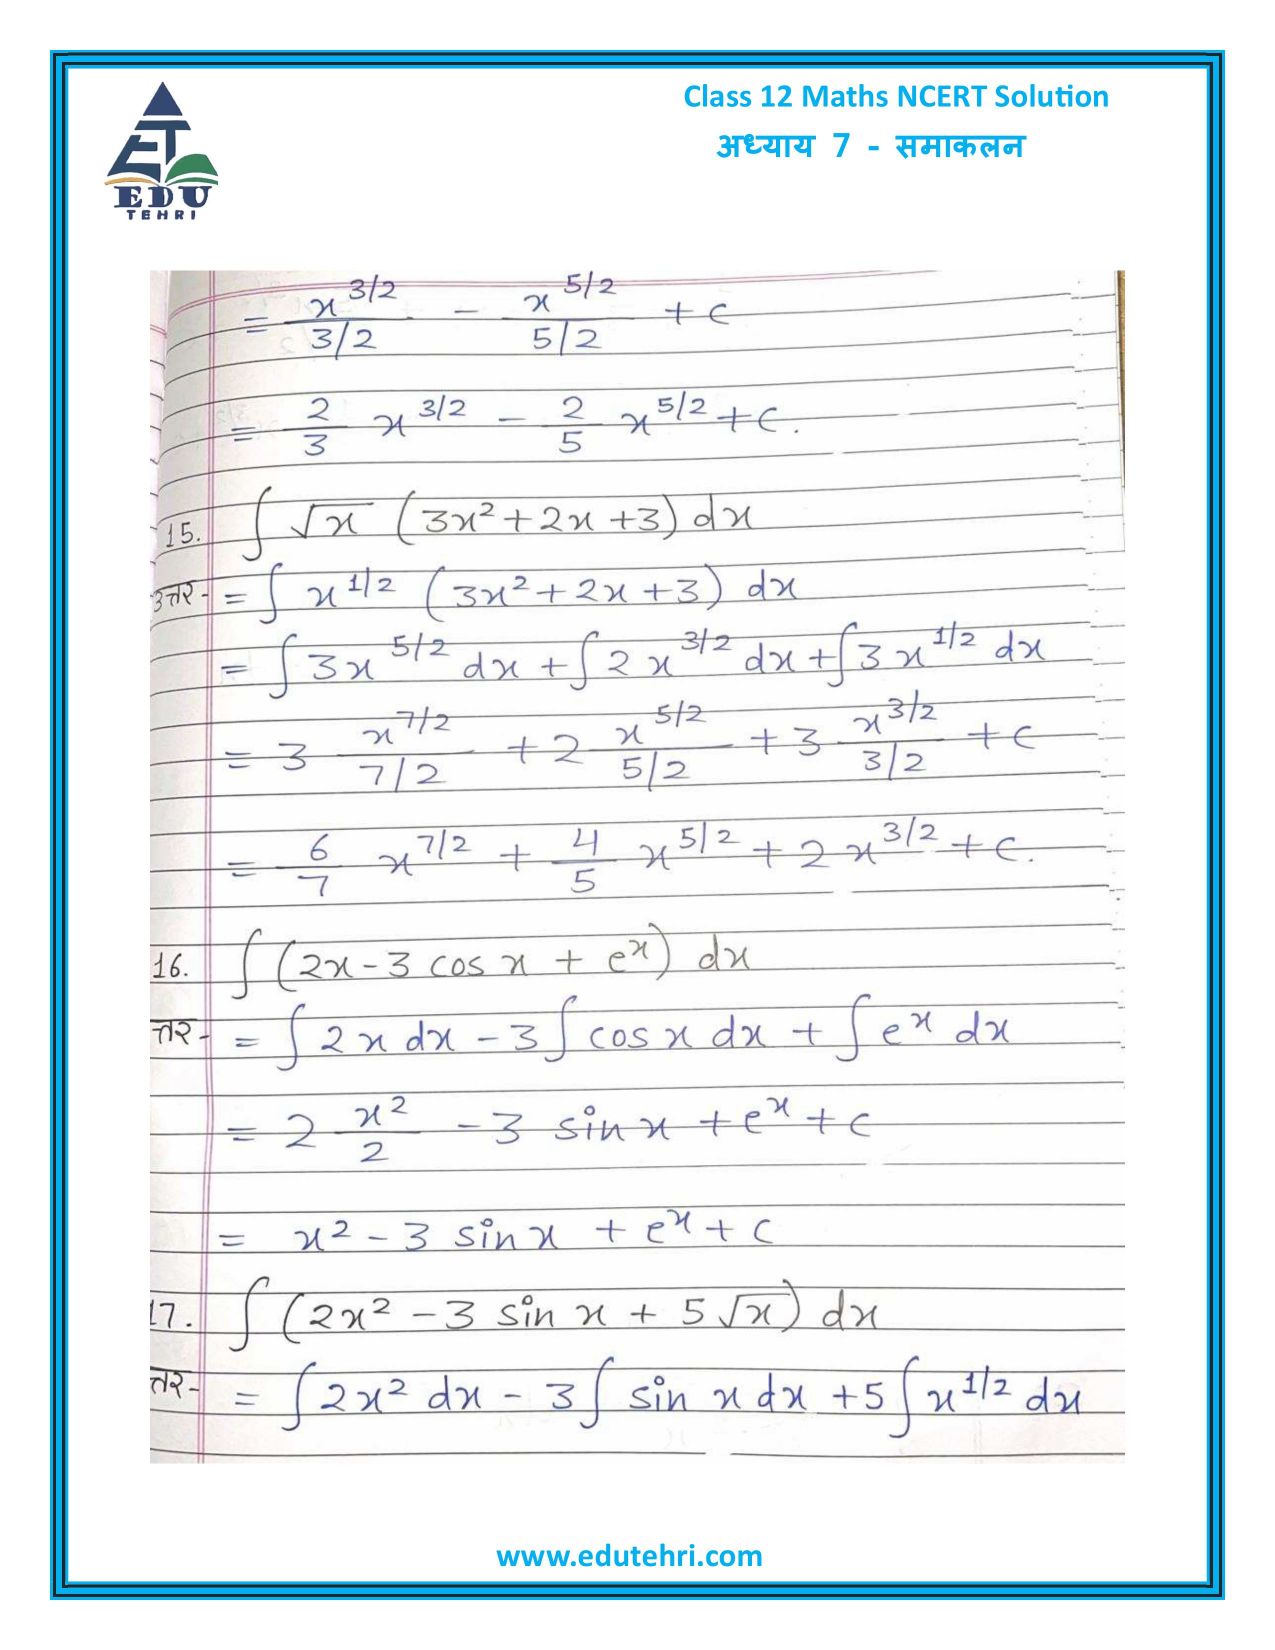 Class 12 Maths NCERT Solution
अध्याय 7 - समाकलन
EDU
TEHRI
= x^3/2 / 3/2 - x^5/2 / 5/2 + c
= 2/3 x^3/2 - 2/5 x^5/2 + c.
15. ∫ √x (3x² + 2x + 3) dx
उत्तर- = ∫ x^1/2 (3x² + 2x + 3) dx
= ∫ 3x^5/2 dx + ∫ 2x^3/2 dx + ∫ 3x^1/2 dx
= 3 x^7/2 / 7/2 + 2 x^5/2 / 5/2 + 3 x^3/2 / 3/2 + c
= 6/7 x^7/2 + 4/5 x^5/2 + 2x^3/2 + c.
16. ∫ (2x - 3 cos x + e^x) dx
त्तर- = ∫ 2x dx - 3 ∫ cos x dx + ∫ e^x dx
= 2 x²/2 - 3 sin x + e^x + c
= x² - 3 sin x + e^x + c
17. ∫ (2x² - 3 sin x + 5√x) dx
त्तर- = ∫ 2x² dx - 3 ∫ sin x dx + 5 ∫ x^1/2 dx
www.edutehri.com